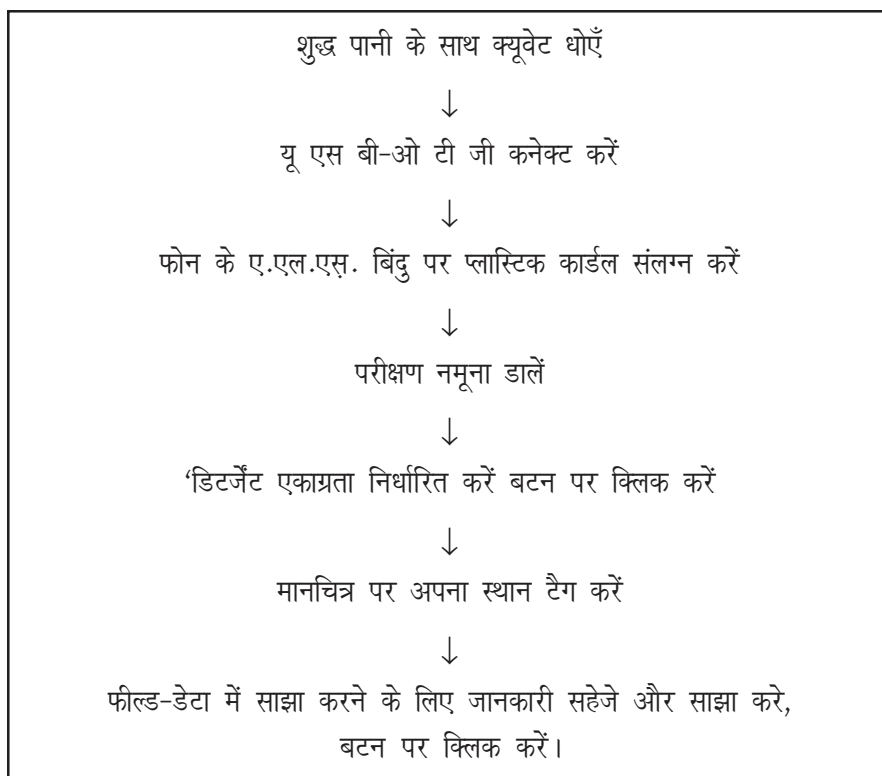 शुद्ध पानी के साथ क्यूवेट धोएँ
↓
यू एस बी-ओ टी जी कनेक्ट करें
↓
फोन के ए.एल.एस़. बिंदु पर प्लास्टिक कार्डल संलग्न करें
↓
परीक्षण नमूना डालें
↓
‘डिटर्जेंट एकाग्रता निर्धारित करें बटन पर क्लिक करें
↓
मानचित्र पर अपना स्थान टैग करें
↓
फील्ड-डेटा में साझा करने के लिए जानकारी सहेजे और साझा करे,
बटन पर क्लिक करें।